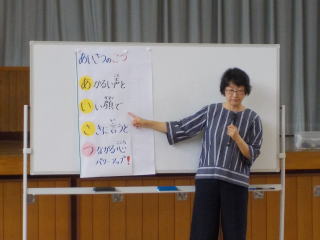 あいさつのこつ
あかるい声と
いい顔で
さきに言うと
つながる心
パワーアップ!